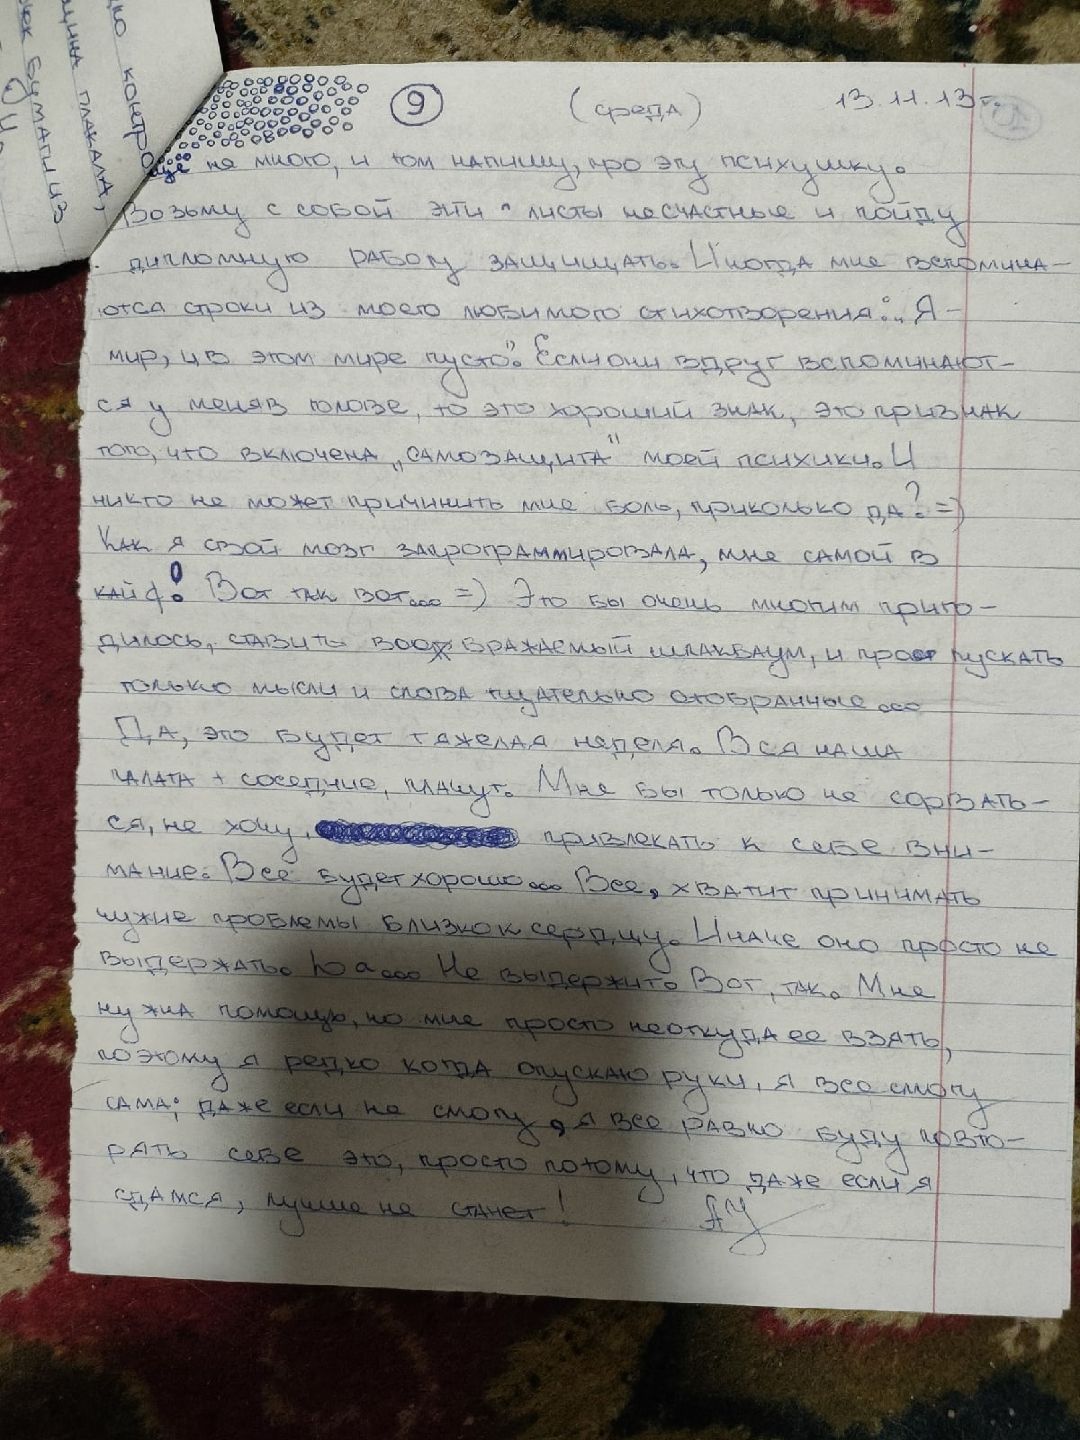 9 (среда) 13.11.13г.
ещё не много, и том напишу, про эту психушку.
Возьму с собой эти листы несчастные и пойду
дипломную работу защищать. Иногда мне вспомина-
ются строки из моего любимого стихотворения: „Я -
мир, и в этом мире пусто". Если они вдруг вспоминают-
ся у меня в голове, то это хороший знак, это признак
того, что включена „самозащита" моей психики. И
никто не может причинить мне боль, прикольно да? =)
Как я свой мозг запрограммировала, мне самой в
кайф! Вот так вот... =) Это бы очень многим приго-
дилось, ставить воображаемый шлакбаум, и пропускать
только мысли и слова тщательно отобранные...
Да, это будет тяжелая неделя. Вся наша
палата + соседние, плачут. Мне бы только не сорвать-
ся, не хочу, привлекать к себе вни-
мание. Всё будет хорошо... Все, хватит принимать
чужие проблемы близко к сердцу. Иначе оно просто не
выдержать. Не выдержит. Вот, так. Мне
нужна помощь, но мне просто неоткуда ее взять,
поэтому я редко когда опускаю руки, я все смогу
сама; даже если не смогу, я все равно буду повто-
рять себе это, просто потому, что даже если я
сдамся, лучше не станет!
ко контро
щина плакала,
ек бумаги из